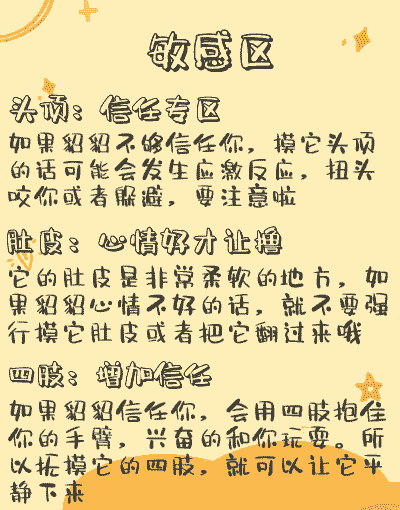 敏感区
头顶：信任专区
如果貂貂不够信任你，摸它头顶
的话可能会发生应激反应，扭头
咬你或者躲避，要注意啦
肚皮：心情好才让撸
它的肚皮是非常柔软的地方，如
果貂貂心情不好的话，就不要强
行摸它肚皮或者把它翻过来哦
四肢：增加信任
如果貂貂信任你，会用四肢抱住
你的手臂，兴奋的和你玩耍。所
以抚摸它的四肢，就可以让它平
静下来